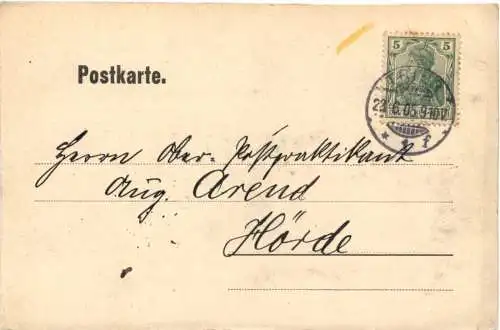 Postkarte.
5 5
22.6.05.9-10V.
* 1 f
Herrn Ober-Postpraktikant
Aug. Arend
Hörde